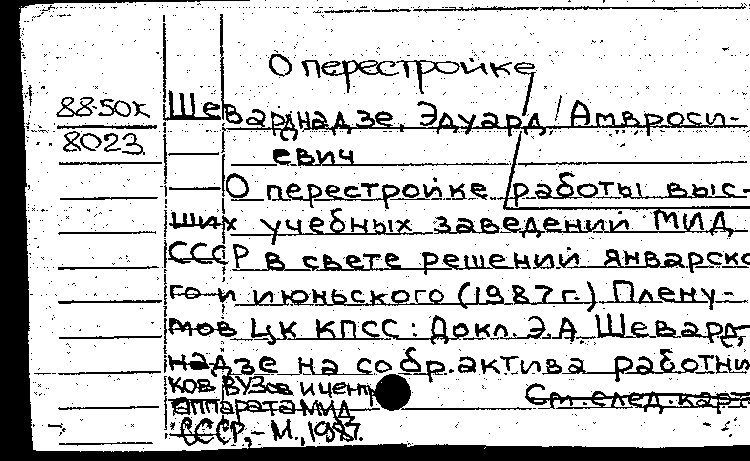 О перестройке
88-50к
8023
Шеварднадзе, Эдуард Амвроси-
евич
О перестройке работы выс-
ших учебных заведений МИД
СССР в свете решений январско
го и июньского (1987 г.) Плену-
мов ЦК КПСС: Докл. Э.А. Шевард,
надзе на собр. актива работни
ков ВУЗов и центр
аппарата МИД
СССР, - М., 1987.
См. след. карт